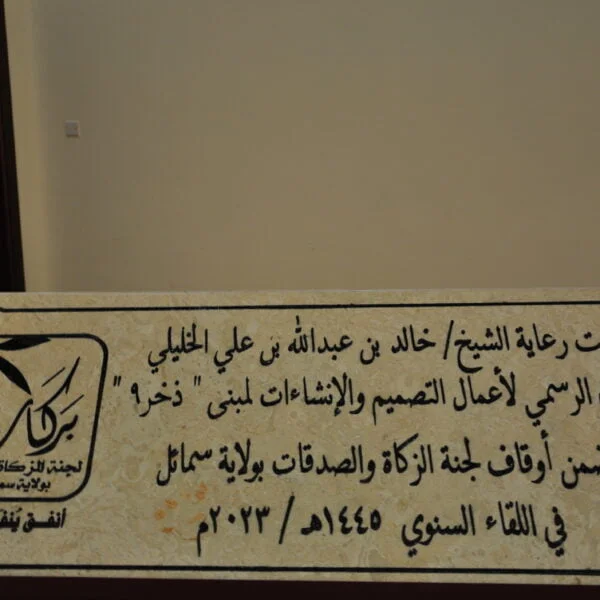 رعاية الشيخ/ خالد بن عبدالله بن علي الخليلي
الرسمي لأعمال التصميم والإنشاءات لمبنى " ذخر٩ "
أوقاف لجنة الزكاة والصدقات بولاية سمائل
في اللقاء السنوي ١٤٤٥هـ / ٢٠٢٣م
لجنة الزكاة
بولاية
أنفق